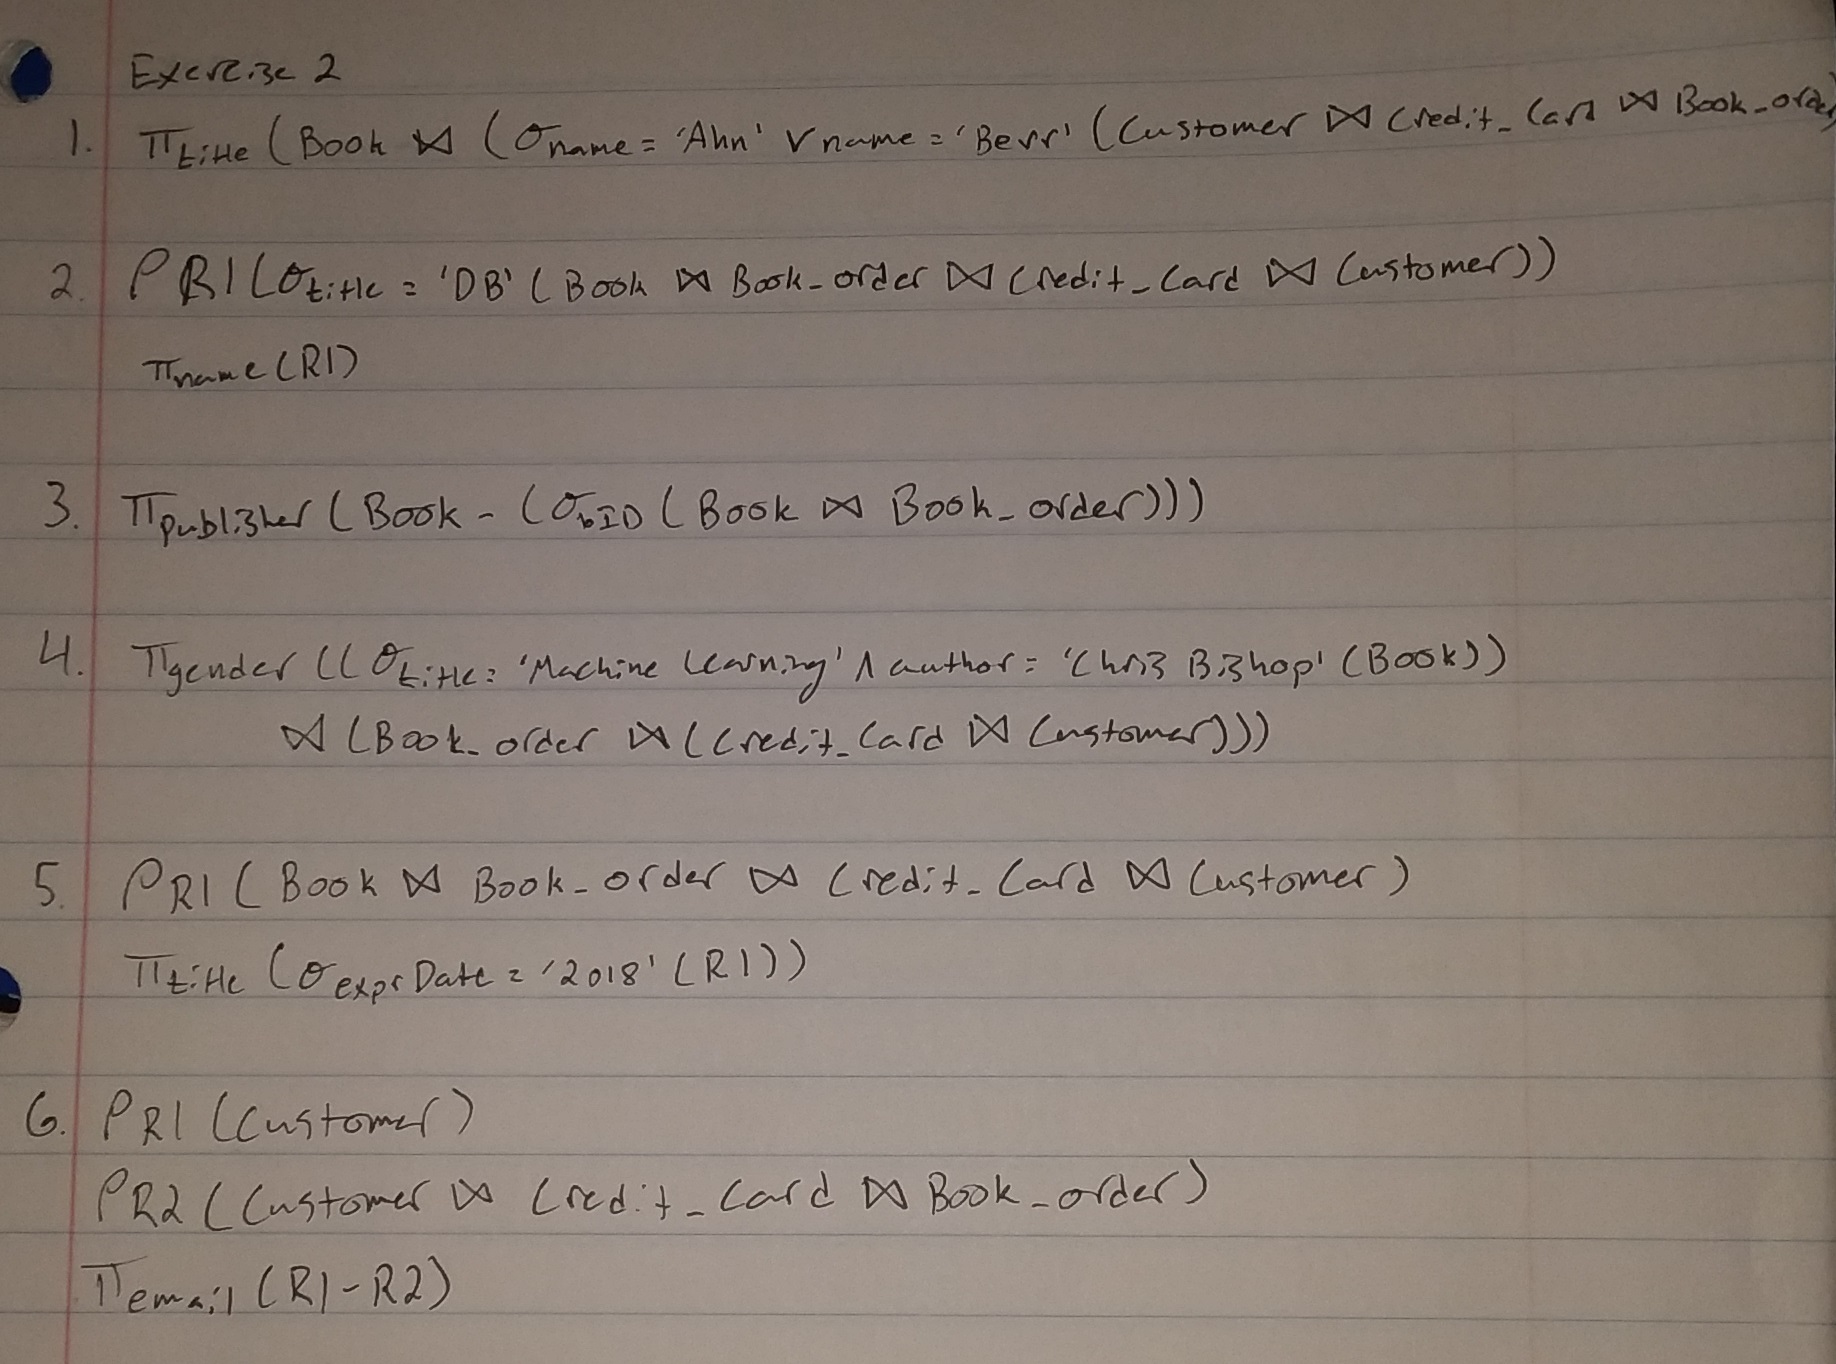 Exercise 2
1. π title (Book ⋈ (σ name = 'Ann' ∨ name = 'Berr' (Customer ⋈ Credit_Card ⋈ Book_order)
2. ρ R1 (σ title = 'DB' (Book ⋈ Book_order ⋈ Credit_Card ⋈ Customer))
π name (R1)
3. π publisher (Book - (σ bID (Book ⋈ Book_order)))
4. π gender ((σ title = 'Machine Learning' ∧ author = 'Chris Bishop' (Book))
⋈ (Book_order ⋈ (Credit_Card ⋈ Customer)))
5. ρ R1 (Book ⋈ Book_order ⋈ Credit_Card ⋈ Customer)
π title (σ exprDate = '2018' (R1))
6. ρ R1 (Customer)
ρ R2 (Customer ⋈ Credit_Card ⋈ Book_order)
π email (R1-R2)